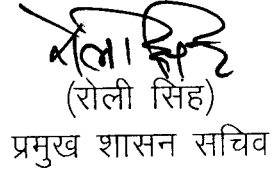 रोली सिंह
(रोली सिंह)
प्रमुख शासन सचिव